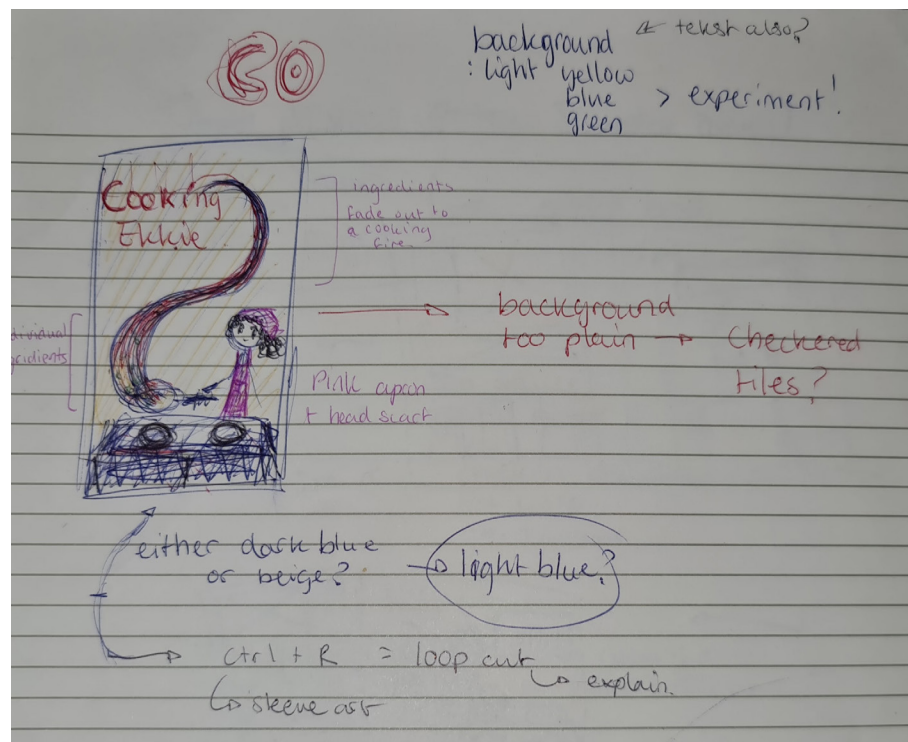 CO
background ← tekst also?
: light yellow
blue > experiment!
green
Cooking
Ekkie
ingredients
fade out to
a cooking
fire
dividual
gridients
background
too plain → Checkered
tiles?
Pink apon
+ head scarf
either dark blue
or beige? → light blue?
ctrl + R = loop cut
↳ explain.
↳ sleeve